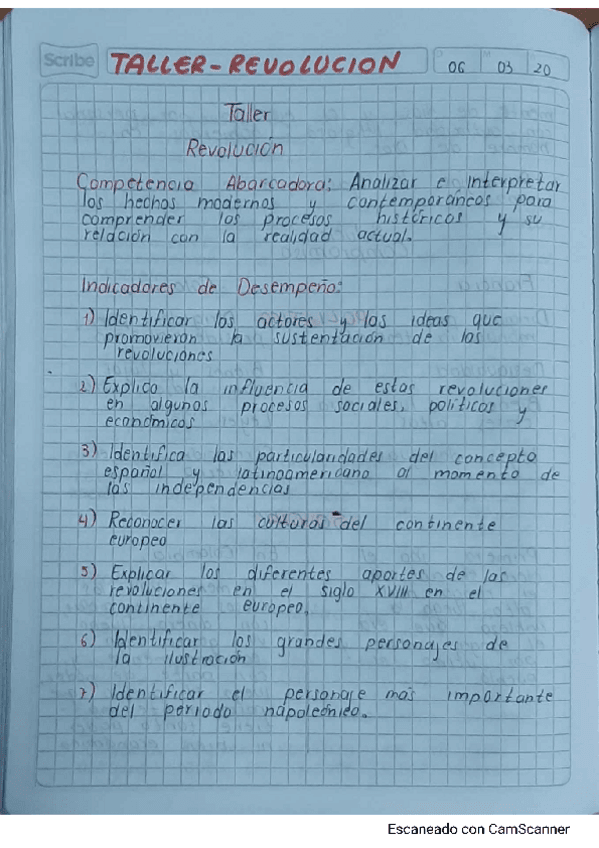 Scribe TALLER-REVOLUCION 06 03 20
Taller
Revolución
Competencia Abarcadora: Analizar e interpretar
los hechos modernos y contemporáneos para
comprender los procesos históricos y su
relación con la realidad actual.
Indicadores de Desempeño:
1) Identificar los actores y las ideas que
promovieron la sustentación de las
revoluciones
2) Explico la influencia de estas revoluciones
en algunos procesos sociales, políticos y
económicos
3) Identifica las particularidades del concepto
español y latinoamericano al momento de
las independencias
4) Reconocer las culturas del continente
europeo
5) Explicar los diferentes aportes de las
revoluciones en el siglo XVIII en el
continente europeo.
6) Identificar los grandes personajes de
la ilustración
7) Identificar el personaje más importante
del período napoleónico.
Escaneado con CamScanner